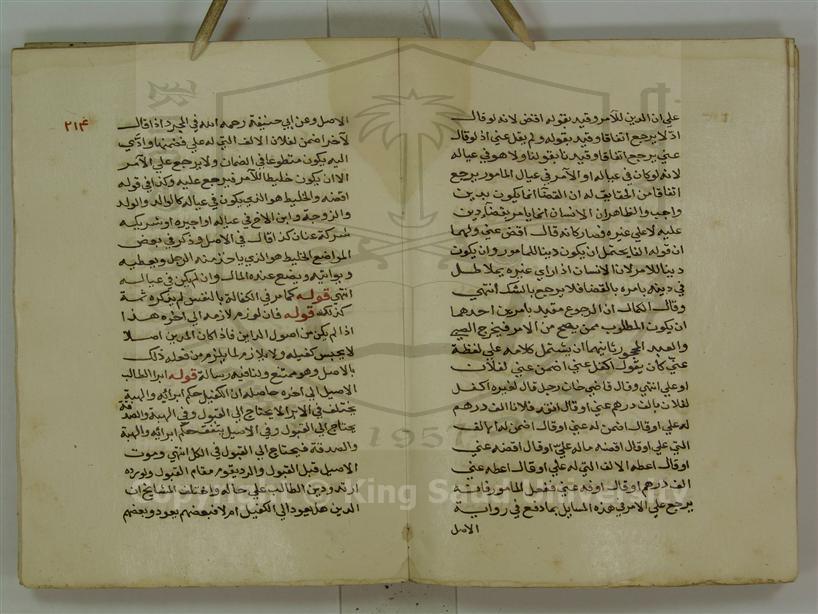 علي ان الدين للآمر وقيد بقوله اقض لانه لو قال
ادّ لا يرجع اتفاقا وقيد بقوله ولم يقل عني اذ لو قال
عني يرجع اتفاقا وقيد نا بقولنا ولا هو في عياله
لانه لو كان في عياله او الآمر في عيال المامور يرجع
اتفاقا من الحقايق له ان القضا انما يكون بدين
واجب والظاهر ان الانسان انما يامر بقضاء دين
عليه لا علي غيره فصار كانه قال اقض عني ولهما
ان قوله الفا يحتمل ان يكون دينا للمامور وان يكون
دينا للامر لان الانسان اذا راي غيره يماطل
في دينه يامره بالقضا فلا يرجع بالشك انتهي
وقال الكمال ان الرجوع مقيد بامرين احدهما
ان يكون المطلوب ممن يصح من الامر فيخرج الصبي
والعبد المحجور ثانيهما ان يشتمل كلامه علي لفظة
عني كان يقول اكفل عني اضمن عني لفلان
او علي انتهي وقال قاضي خان رجل قال لغيره اكفل
لفلان بالف درهم عني او قال انقد فلانا الف درهم
له علي او قال اضمن له عني او قال اضمن له الالف
التي علي او قال اقضه ماله علي او قال اقضه عني
او قال اعطه الالف التي له علي او قال اعطه عني
الف درهم او قال اوفه عني ففعل المامور فانه
يرجع علي الامر في هذه المسايل بما دفع في رواية
الاصل
٢١٤
الاصل وعن ابي حنيفة رحمه الله في المجرد اذا قال
لآخر اضمن لفلان الالف التي له علي فضمنها وادّي
اليه يكون متطوعا في الضمان ولا يرجع علي الآمر
الا ان يكون خليطا للآمر فيرجع عليه وكذا في قوله
اقضه والخليط هو الذي يكون في عياله كالوالد والولد
والزوجة وابن الاخ في عياله او اجيره او شريكه
شركة عنان كذا قال في الاصل وذكر في بعض
المواضع الخليط هو الذي ياخذ منه الرجل ويعطيه
ويداينه ويضع عنده المال وان لم يكن في عياله
انتهي قوله كما مر في الكفالة بالنفس لم يذكره ثمة
كذلك قوله فان لوزم لازمه الي اخره هذا
اذا لم يكن من اصول الداين فاذا كان المدين اصلا
لا يحبس كفيله ولا يلازم لما يلزم من قوله ذلك
بالاصل وهو ممتنع ولنا فيه رسالة قوله ابرا الطالب
الاصيل الي اخره حاصله ان الكفيل حكم ابرائه والهبة
يختلف في الابرا لا يحتاج الي القبول وفي الهبة والصدقة
يحتاج الي القبول وفي الاصيل يتفق حكم ابرائه والهبة
والصدقة فيحتاج الي القبول في الكل انتهي وموت
الاصيل قبل القبول والرد يقوم مقام القبول ولو رده
ارتد ودين الطالب علي حاله واختلف المشايخ ان
الدين هل يعود الي الكفيل ام لا فبعضهم يعود وبعضهم
1957
Copyright © King Saud University